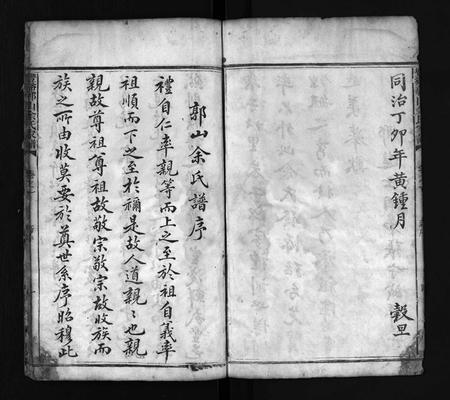 同治丁卯年黃鍾月 穀旦
郭山余氏譜序
禮自仁率親等而上之至於祖自義率
祖順而下之至於禰是故人道親〻也親
親故尊祖尊祖故敬宗敬宗故收族而
族之所由收莫要於奠世系序昭穆此